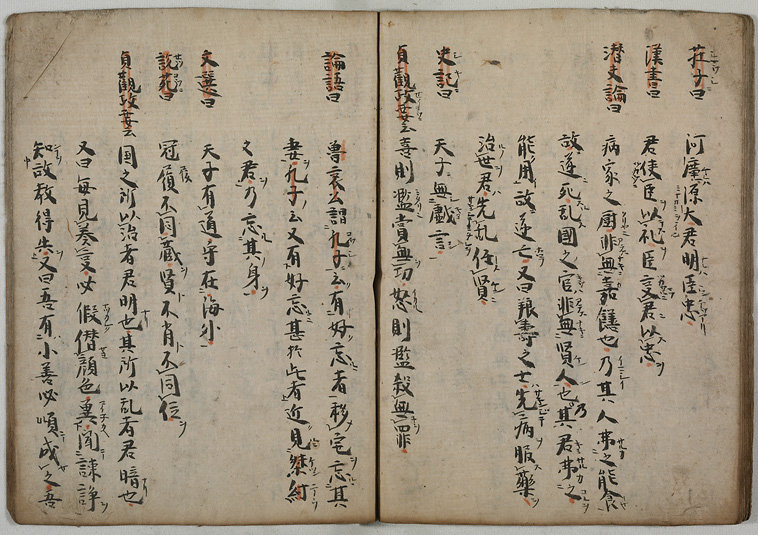 荘子曰
河廣源大君明臣忠
漢書曰
君使臣以礼臣事君以忠
潜夫論曰
病家之厨非無嘉饌也乃其人弗之能食
故遂死乱国之官非無賢人也其君弗之
能用故遂亡又曰養壽之士先病服薬
治世君先乱任賢
史記曰
天子無戯言
貞觀政要云
喜則濫賞無功怒則濫殺無罪
論語曰
魯哀公謂孔子云有好忘者移宅忘其
妻孔子云又有好忘甚於此者近見桀紂
之君乃忘其身
文選曰
天子有道守在海外
説苑曰
冠履不同蔵賢不肖不同位
貞觀政要云
国之所以治者君明也其所以乱者君暗也
又曰每見奏言必假借顔色冀聞諌諍
知政教得失又曰吾有小善必順成之吾